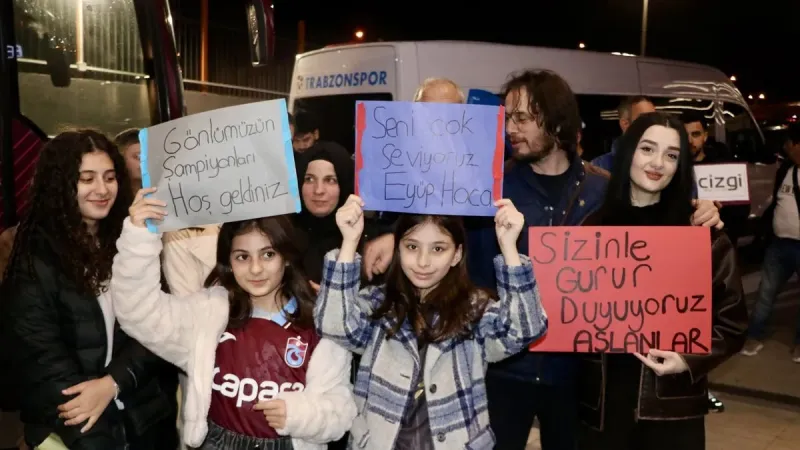 33
TRABZONSPOR
Gönlümüzün
Şampiyonları
Hoş geldiniz
Seni çok
Seviyoruz
Eyüp Hoca
çizgi
Sizinle
Gurur
Duyuyoruz
ASLANLAR
Papara